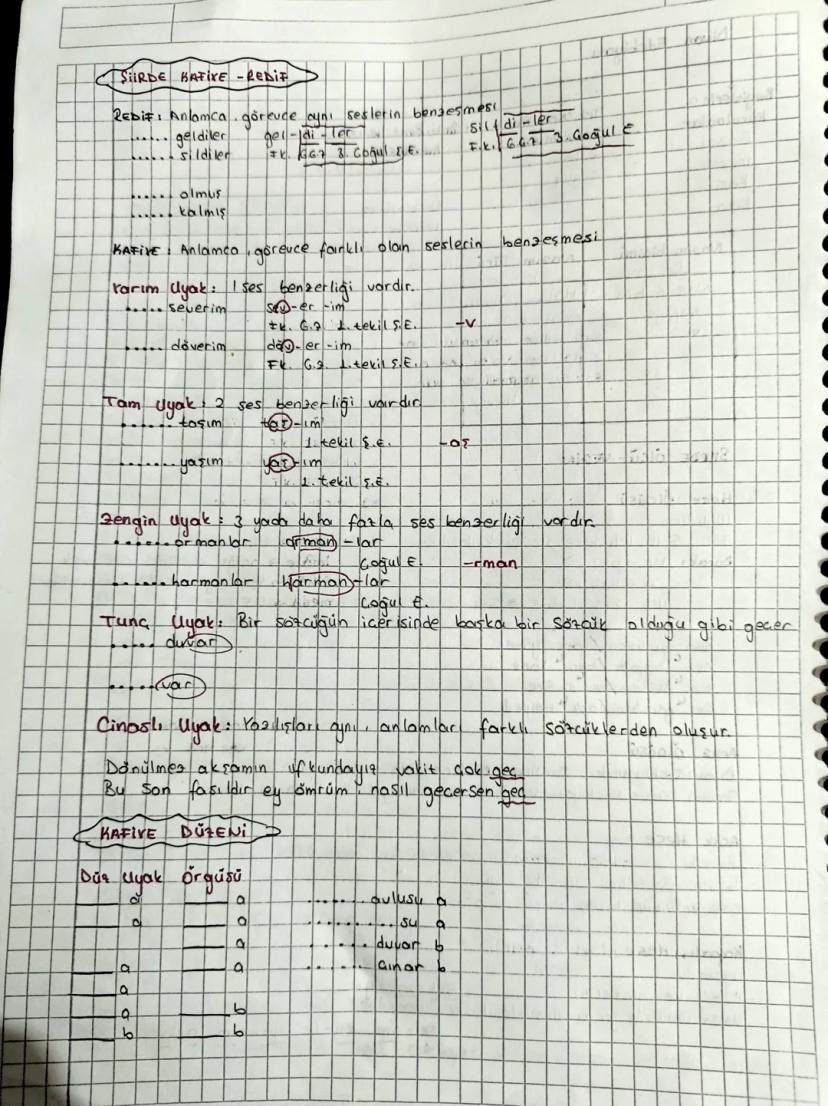 ŞİİRDE KAFİYE - REDİF
REDİF: Anlamca, görevce aynı seslerin benzeşmesi
...... geldiler gel-di-ler sil-di-ler
...... sildiler F.k. G.G.Z 3. Çoğul Ş.E. F.k. G.G.Z 3. Çoğul E
...... olmuş
...... kalmış
KAFİYE: Anlamca, görevce farklı olan seslerin benzeşmesi
Yarım Uyak: 1 ses benzerliği vardır.
..... severim sev-er-im
F.k. G.Z 1. tekil Ş.E. -v
..... döverim döv-er-im
F.k. G.Z. 1. tekil Ş.E.
Tam Uyak: 2 ses benzerliği vardır
....... taşım taş-ım
1. tekil Ş.E. -aş
...... yaşım yaş-ım
1. tekil Ş.E.
Zengin Uyak: 3 yada daha fazla ses benzerliği vardır.
....... ormanlar orman-lar
Çoğul E. -rman
....... harmanlar harman-lar
Çoğul E.
Tunç Uyak: Bir sözcüğün içerisinde başka bir sözcük olduğu gibi geçer
..... duvar
..... var
Cinaslı Uyak: Yazılışları aynı, anlamları farklı sözcüklerden oluşur.
Dönülmez akşamın ufkundayız vakit çok geç
Bu son fasıldır ey ömrüm, nasıl geçersen geç
KAFİYE DÜZENİ
Düz Uyak Örgüsü
____ a ____ a ....... avlusu a
____ a ____ a .......... su a
____ a ..... duvar b
____ a ____ a ...... çınar b
____ a
____ a ____ b
____ b ____ b